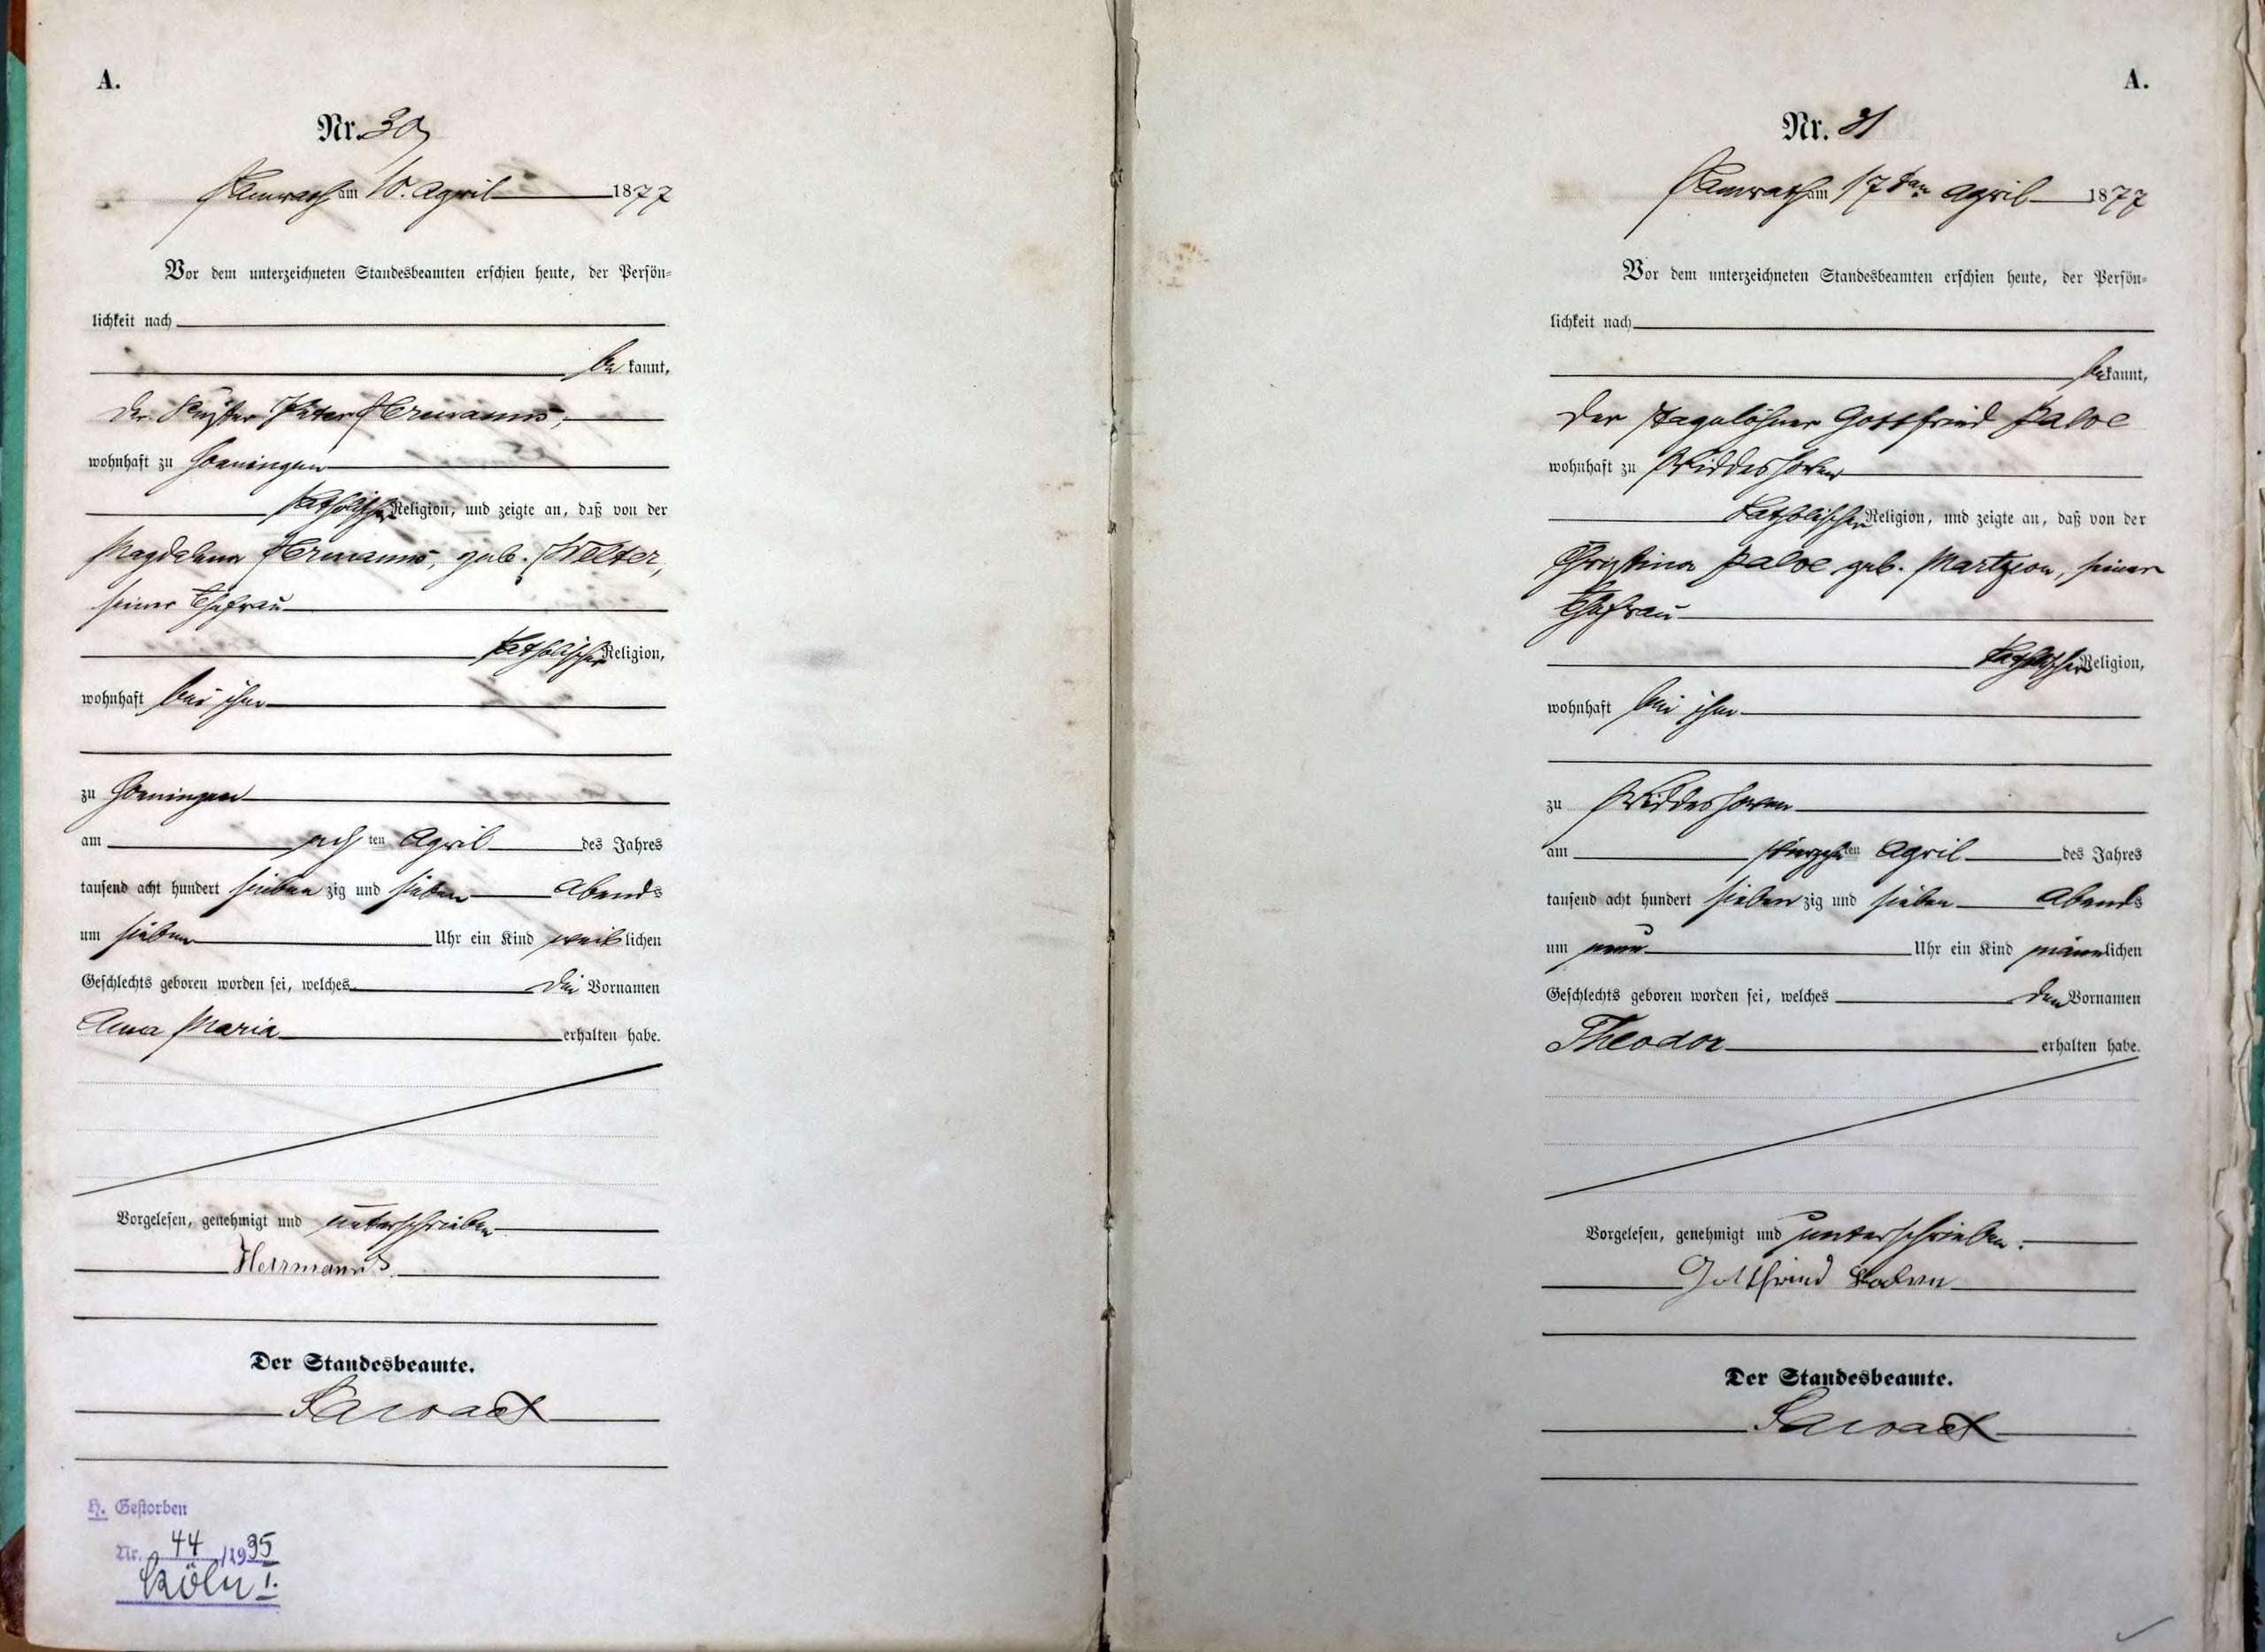 A.
Nr. 30
am 10. April 1877
Vor dem unterzeichneten Standesbeamten erschien heute, der Persön=
lichkeit nach
be kannt,
der Peter Hermanns,
wohnhaft zu Hoeningen
katholischer Religion, und zeigte an, daß von der
Magdalena Hermanns, geb. Welter,
seiner Ehefrau
katholischer Religion,
wohnhaft bei ihm
zu Hoeningen
am achten April des Jahres
tausend acht hundert siebenzig und sieben Abends
um sieben Uhr ein Kind weiblichen
Geschlechts geboren worden sei, welches die Vornamen
Anna Maria erhalten habe.
Vorgelesen, genehmigt und unterschrieben
Herrmanns
Der Standesbeamte.
H. Gestorben
Nr. 44 /1935
Köln I.
A.
Nr. 31
am 17ten April 1877
Vor dem unterzeichneten Standesbeamten erschien heute, der Persön=
lichkeit nach
bekannt,
der Tagelöhner Gottfried
wohnhaft zu Widdeshoven
katholischer Religion, und zeigte an, daß von der
Christina geb. seiner
Ehefrau
katholischer Religion,
wohnhaft bei ihm
zu Widdeshoven
am vierzehnten April des Jahres
tausend acht hundert siebenzig und sieben Abends
um neun Uhr ein Kind männlichen
Geschlechts geboren worden sei, welches den Vornamen
Theodor erhalten habe.
Vorgelesen, genehmigt und unterschrieben.
Gottfried
Der Standesbeamte.